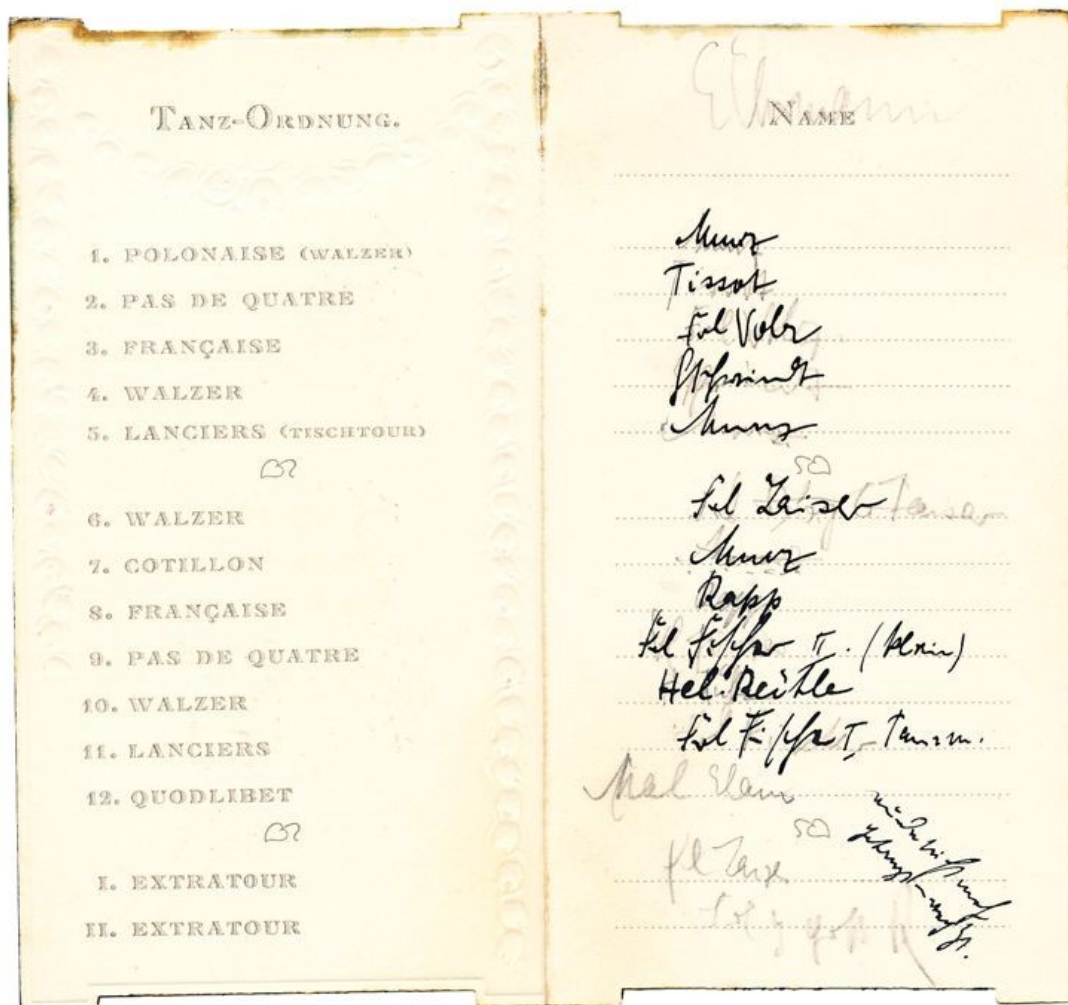 TANZ-ORDNUNG.
1. POLONAISE (WALZER)
2. PAS DE QUATRE
3. FRANÇAISE
4. WALZER
5. LANCIERS (TISCHTOUR)
6. WALZER
7. COTILLON
8. FRANÇAISE
9. PAS DE QUATRE
10. WALZER
11. LANCIERS
12. QUODLIBET
I. EXTRATOUR
II. EXTRATOUR
NAME
Munz
Tissot
Frl Volz
Munz
Frl Zaiser
Munz
Rapp
Frl Fischer II.
Hel. Reitle
Frl Fischer I. Tanzm.